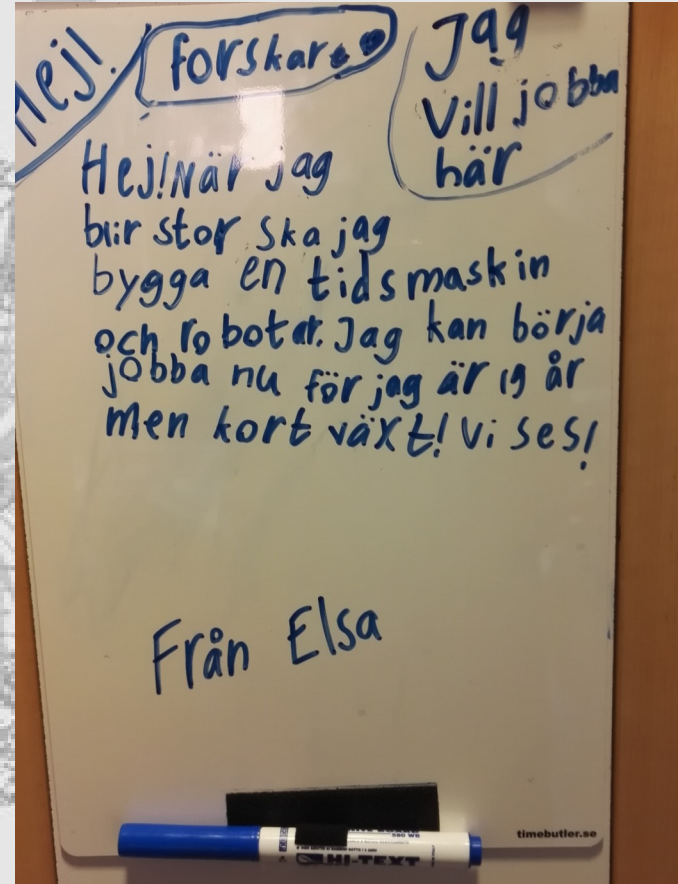 Hej!
forskare
Jag
vill jobba
här
Hej! När jag
blir stor ska jag
bygga en tidsmaskin
och robotar. Jag kan börja
jobba nu för jag är 19 år
men kort växt! Vi ses!
Från Elsa
timebutler.se
580 WB
HI-TEXT